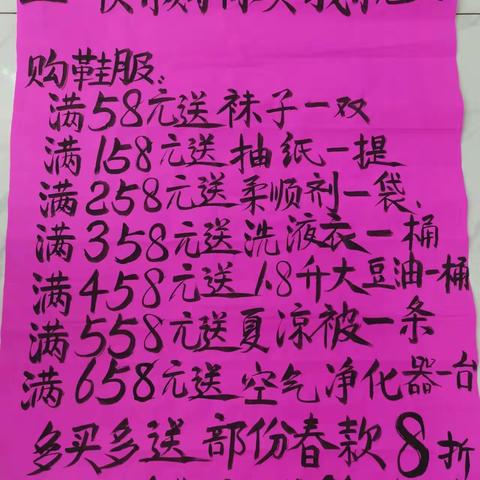 购鞋服:
满58元送袜子一双
满158元送抽纸一提
满258元送柔顺剂一袋、
满358元送洗液衣一桶
满458元送1.8升大豆油一桶
满558元送夏凉被一条
满658元送空气净化器一台
多买多送 部份春款8折